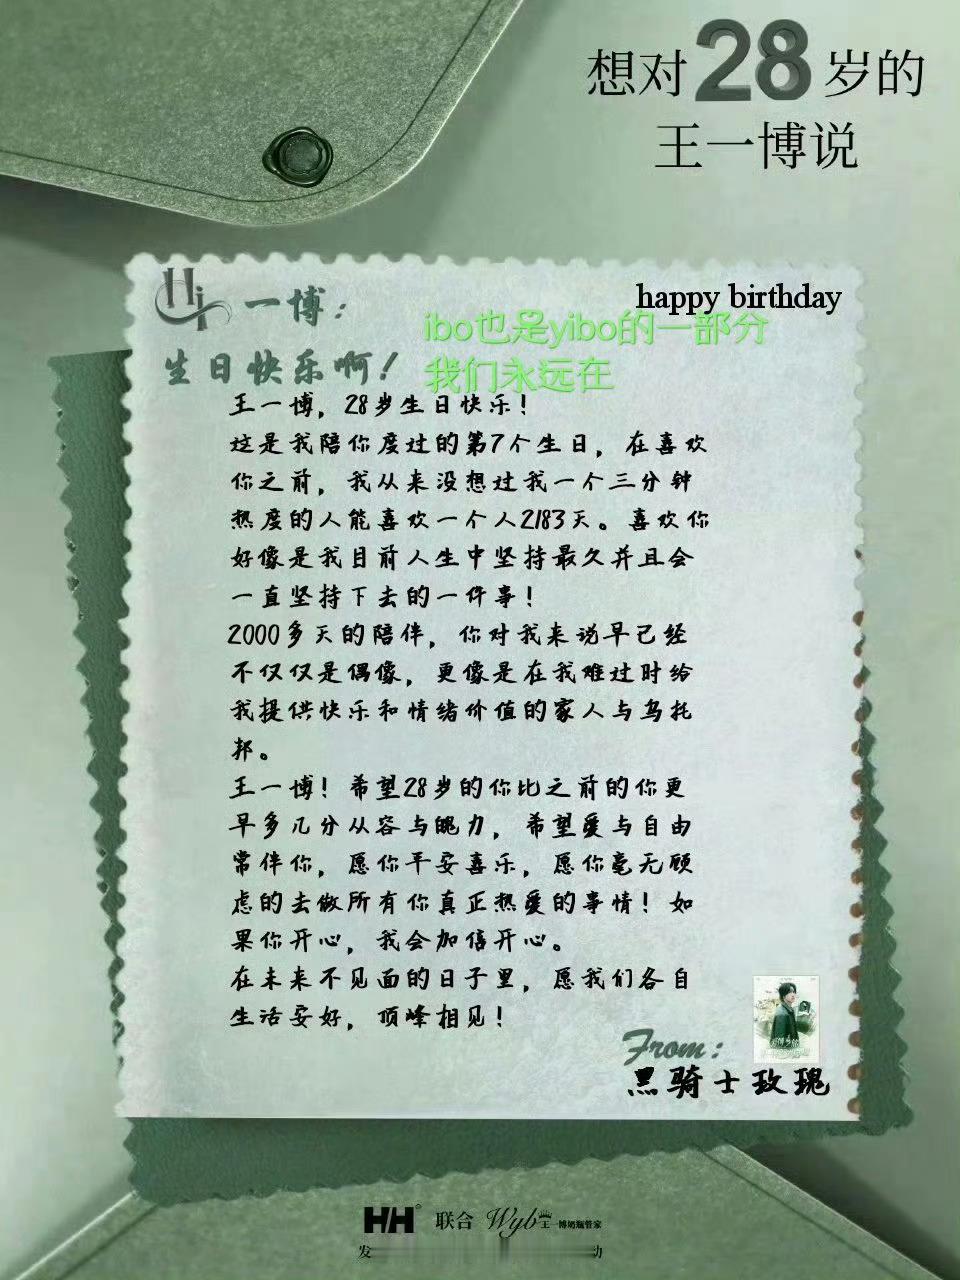 想对28岁的
王一博说
Hi 一博：
happy birthday
ibo也是yibo的一部分
生日快乐啊！
我们永远在
王一博，28岁生日快乐！
这是我陪你度过的第7个生日，在喜欢
你之前，我从来没想过我一个三分钟
热度的人能喜欢一个人2183天。喜欢你
好像是我目前人生中坚持最久并且会
一直坚持下去的一件事！
2000多天的陪伴，你对我来说早已经
不仅仅是偶像，更像是在我难过时给
我提供快乐和情绪价值的家人与乌托
邦。
王一博！希望28岁的你比之前的你更
早多几分从容与魄力，希望爱与自由
常伴你，愿你平安喜乐，愿你毫无顾
虑的去做所有你真正热爱的事情！如
果你开心，我会加倍开心。
在未来不见面的日子里，愿我们各自
生活安好，顶峰相见！
From：
黑骑士玫瑰
HH 联合 Wyb王一博奶瓶管家
发
动